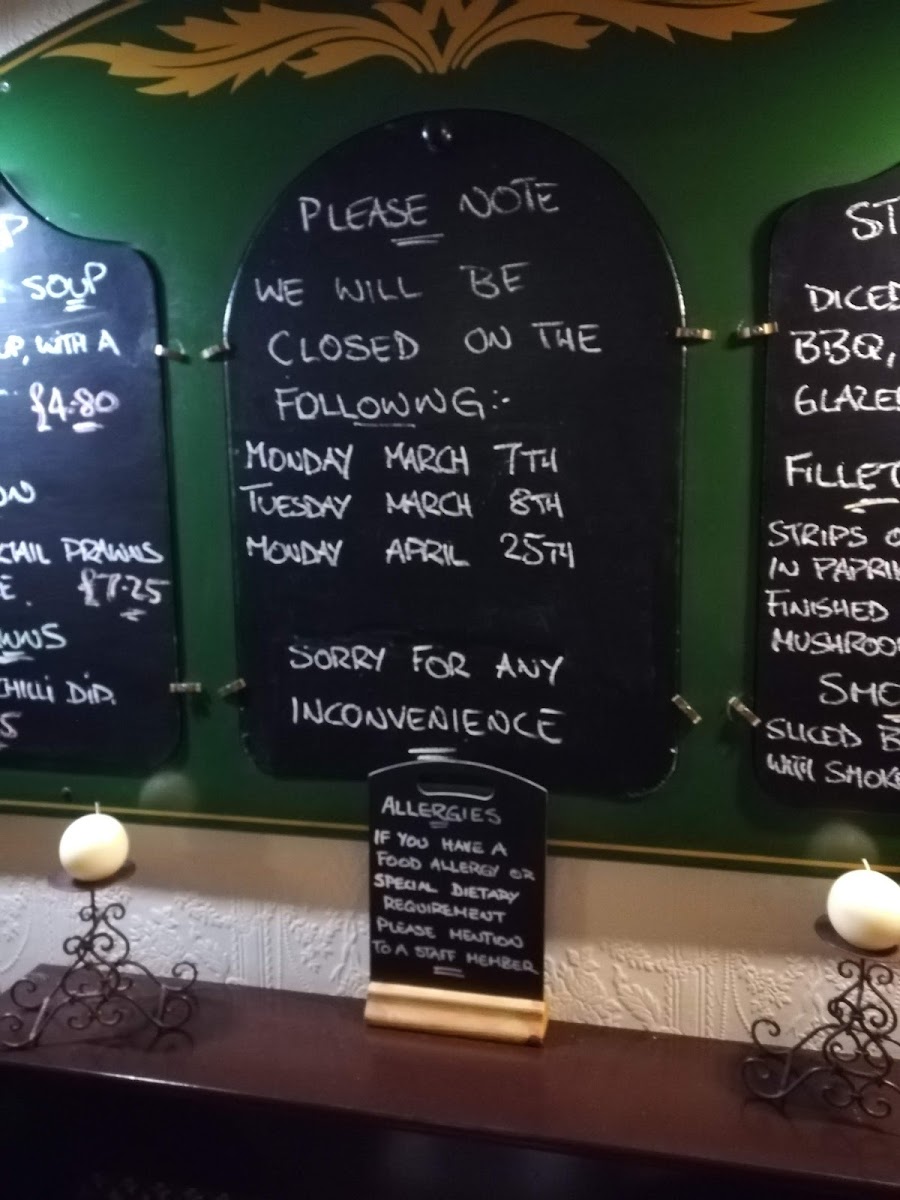 PLEASE NOTE
WE WILL BE
CLOSED ON THE
FOLLOWING:-
MONDAY MARCH 7TH
TUESDAY MARCH 8TH
MONDAY APRIL 25TH
SORRY FOR ANY
INCONVENIENCE
ALLERGIES
IF YOU HAVE A
FOOD ALLERGY OR
SPECIAL DIETARY
REQUIREMENT
PLEASE MENTION
TO A STAFF MEMBER
SOUP
WITH A
£4.80
PRAWNS
£7.25
CHILLI DIP.
ST
DICED
BBQ,
GLAZE
FILLET
STRIPS O
IN PAPRI
FINISHED
MUSHROO
SMO
SLICED B
WITH SMOK